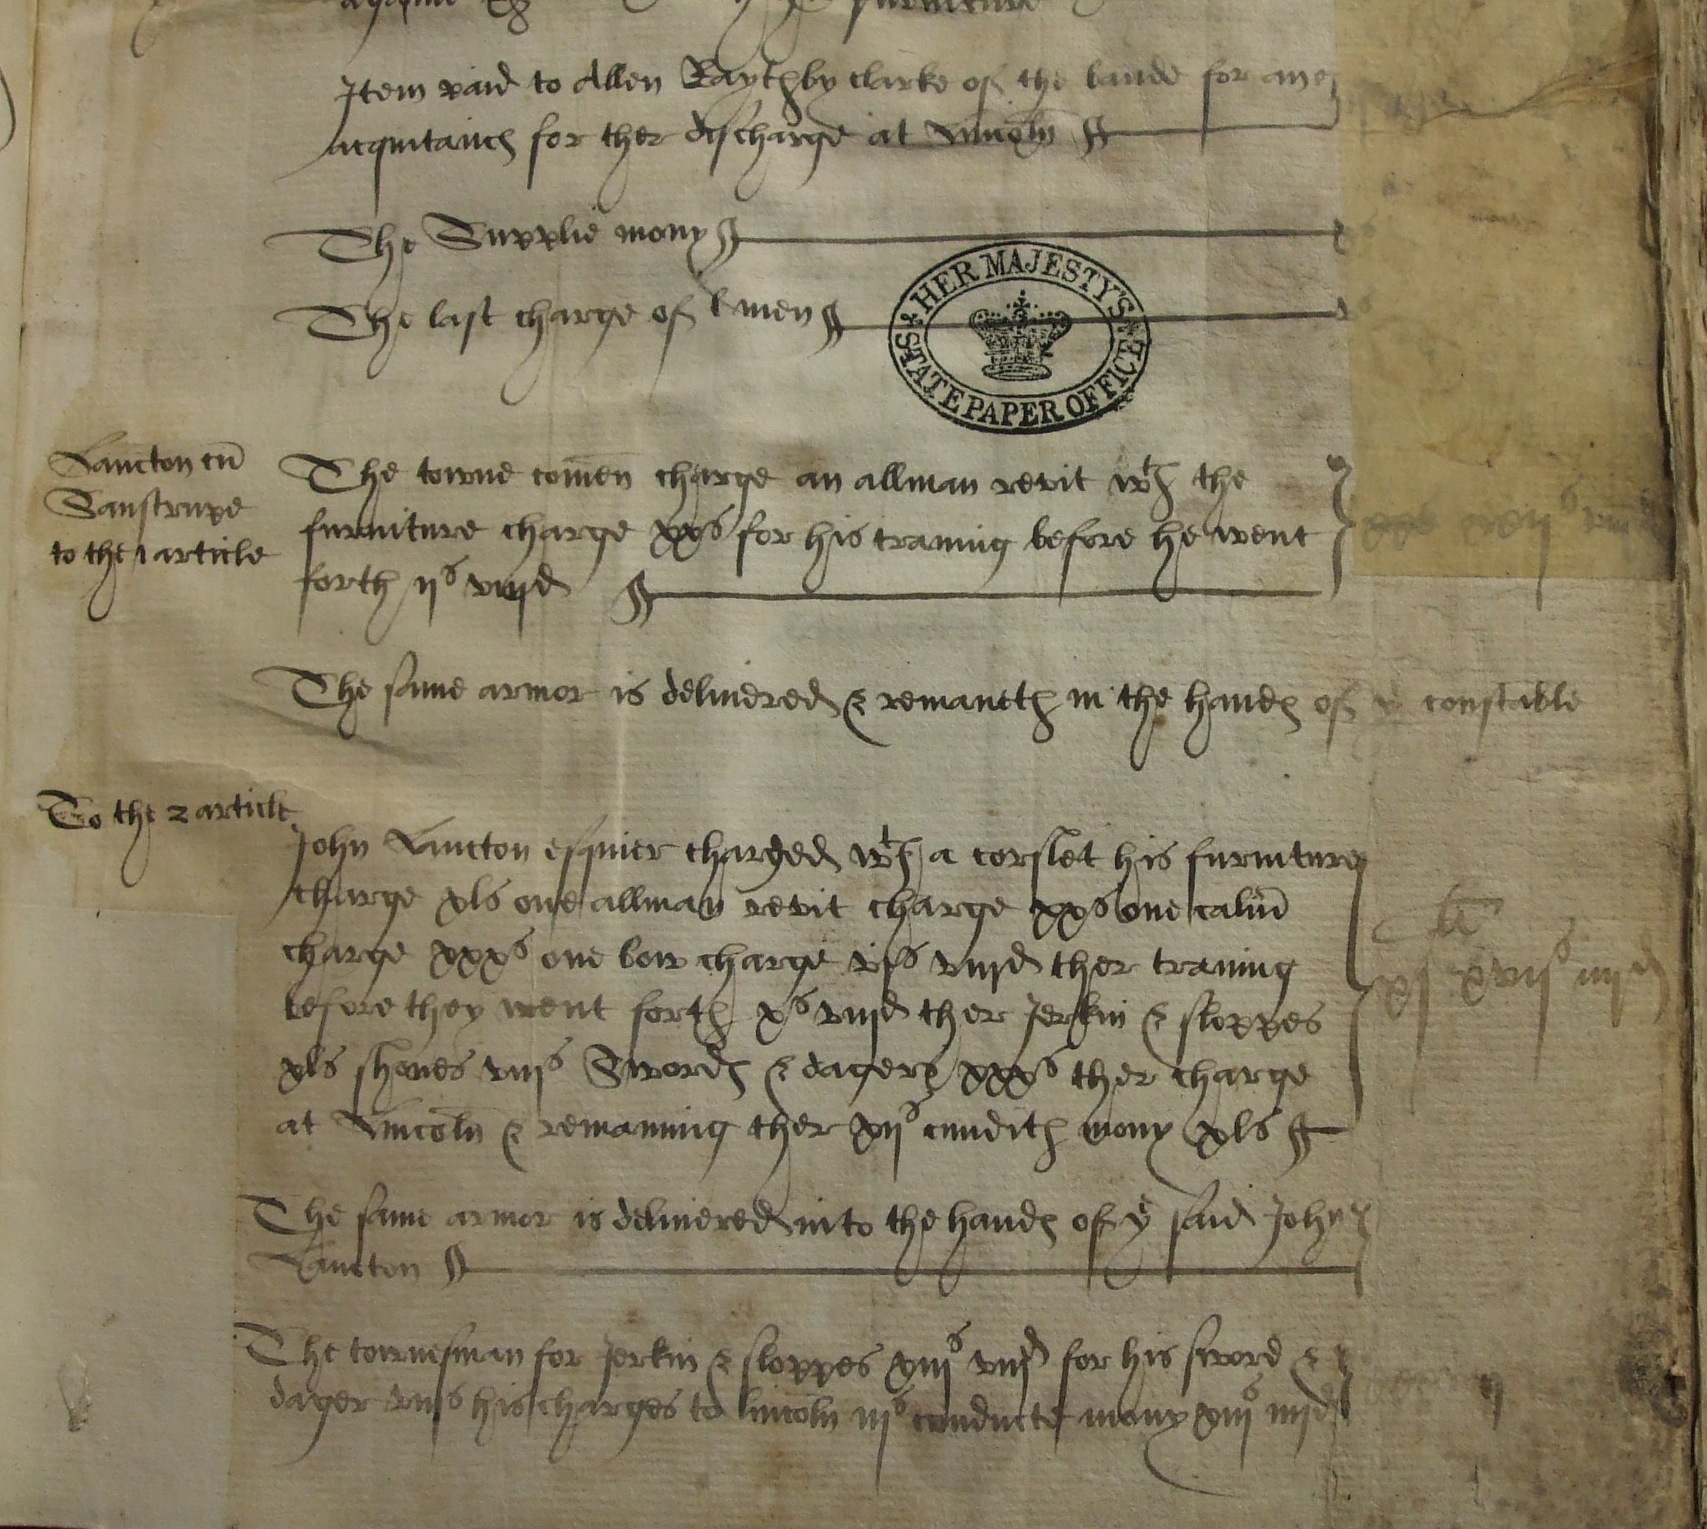 furniture
Item paid to Allen Raythby clarke of the bande for an
acquitanch for ther discharge at Lincoln
The Supplie mony
The last charge of l men
HER MAJESTY'S
STATE PAPER OFFICE
Lancton cu
Sanstrupe
to the 1 article
The towne comen charge an allman revit wth the
furniture charge xxs for his traning before he went
forth iis viijd
The same armor is delivered & remaneth in the handes of ye constable
To the 2 article
John Lancton esquier charged wth a corslet his furniture
charge xls one allman revit charge xxs one caliu
charge xxxs one bow charge vis viijd ther traning
before they went forth xs viijd ther Jerkin & sloppes
xls shoues viijs Swordes & dagers xxxs ther charge
at Lincoln & remanning ther xijs cundith mony xls
li
xj xviis iiijd
The same armor is delivered into the handes of ye said John
Lancton
The townsman for Jerkin & sloppes xiijs viijd for his sword &
dager viijs his charges to lincoln iijs conducte mony xiijs iiijd